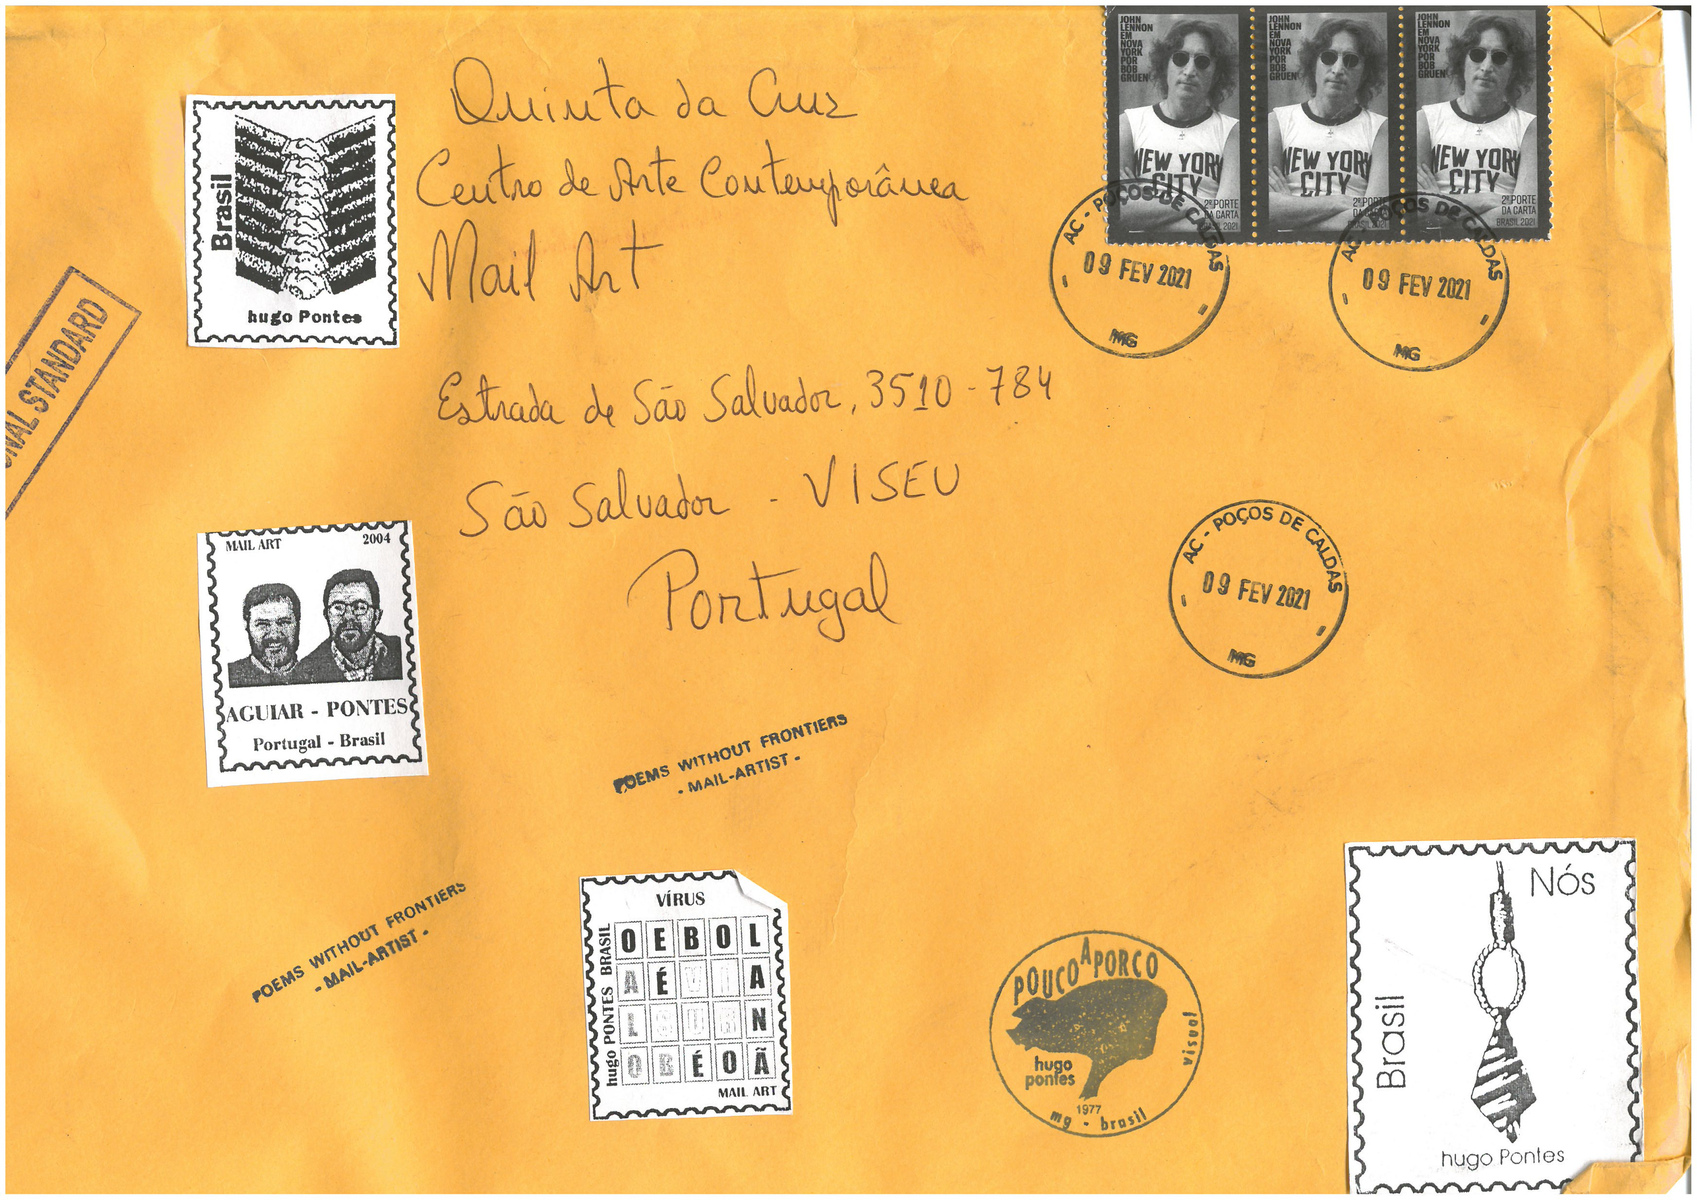 Quinta da Cruz
Centro de Arte Contemporânea
Mail Art
Estrada de São Salvador, 3510-784
São Salvador - VISEU
Portugal
JOHN
LENNON
EM
NOVA
YORK
POR
BOB
GRUEN
NEW YORK
CITY
2º PORTE
DA CARTA
BRASIL 2021
JOHN
LENNON
EM
NOVA
YORK
POR
BOB
GRUEN
NEW YORK
CITY
2º PORTE
DA CARTA
BRASIL 2021
JOHN
LENNON
EM
NOVA
YORK
POR
BOB
GRUEN
NEW YORK
CITY
2º PORTE
DA CARTA
BRASIL 2021
AC - POÇOS DE CALDAS
- 09 FEV 2021 -
MG
AC - POÇOS DE CALDAS
- 09 FEV 2021 -
MG
AC - POÇOS DE CALDAS
- 09 FEV 2021 -
MG
Brasil
hugo Pontes
STANDARD
MAIL ART 2004
AGUIAR - PONTES
Portugal - Brasil
POEMS WITHOUT FRONTIERS
- MAIL-ARTIST -
POEMS WITHOUT FRONTIERS
- MAIL-ARTIST -
VÍRUS
hugo PONTES BRASIL
O E B O L
A É V Í A
L S U R N
O B É O Ã
MAIL ART
POUCO A PORCO
visual
hugo
pontes
1977
mg - brasil
Nós
Brasil
hugo Pontes